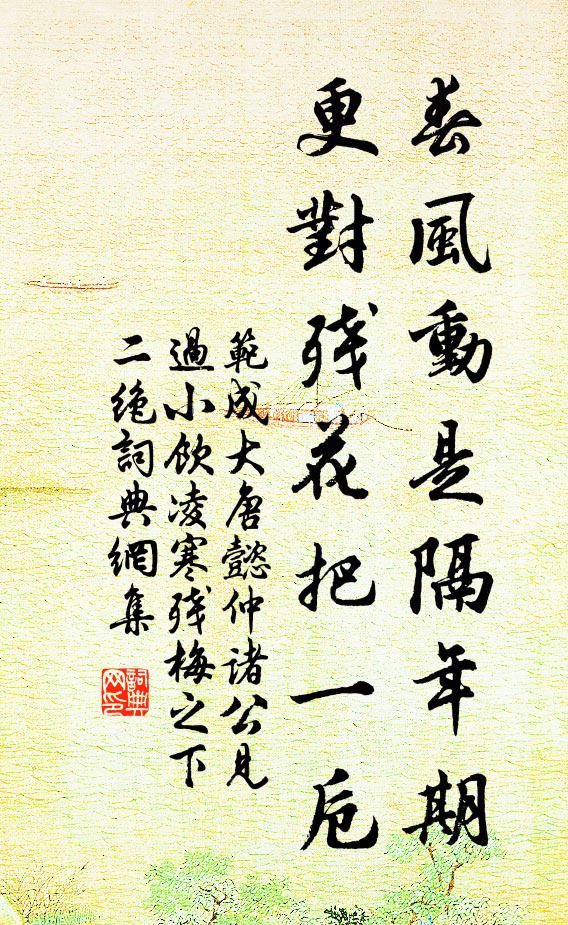 春風動是隔年期
更對殘花把一卮
範成大唐懿仲諸公見
過小飲凌寒殘梅之下
二絕詞典網集
詞典
网印